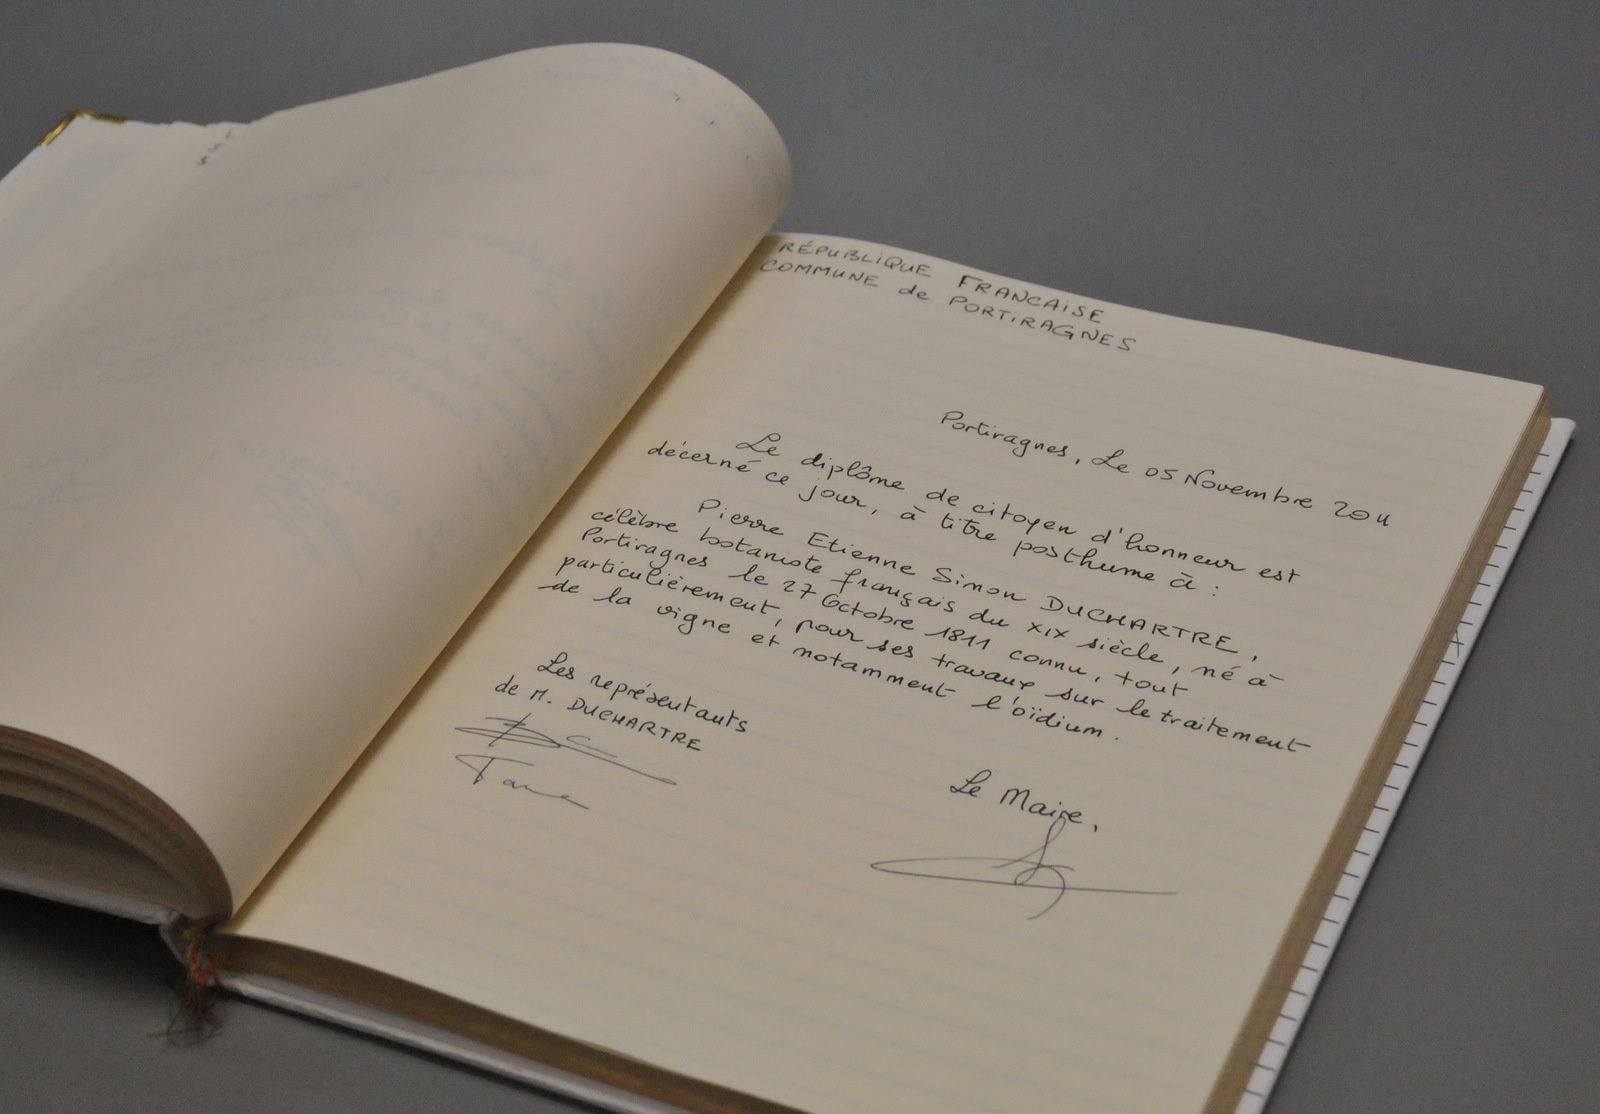 RÉPUBLIQUE FRANCAISE
COMMUNE de PORTIRAGNES
Portiragnes, Le 05 Novembre 2011
Le diplôme de citoyen d'honneur est
décerné ce jour, à titre posthume à :
Pierre Etienne Simon DUCHARTRE,
célèbre botaniste français du XIX siècle, né à
Portiragnes le 27 Octobre 1811 connu, tout
particulièrement, pour ses travaux sur le traitement
de la vigne et notamment l'oïdium.
Les représentants
de M. DUCHARTRE
Le Maire,